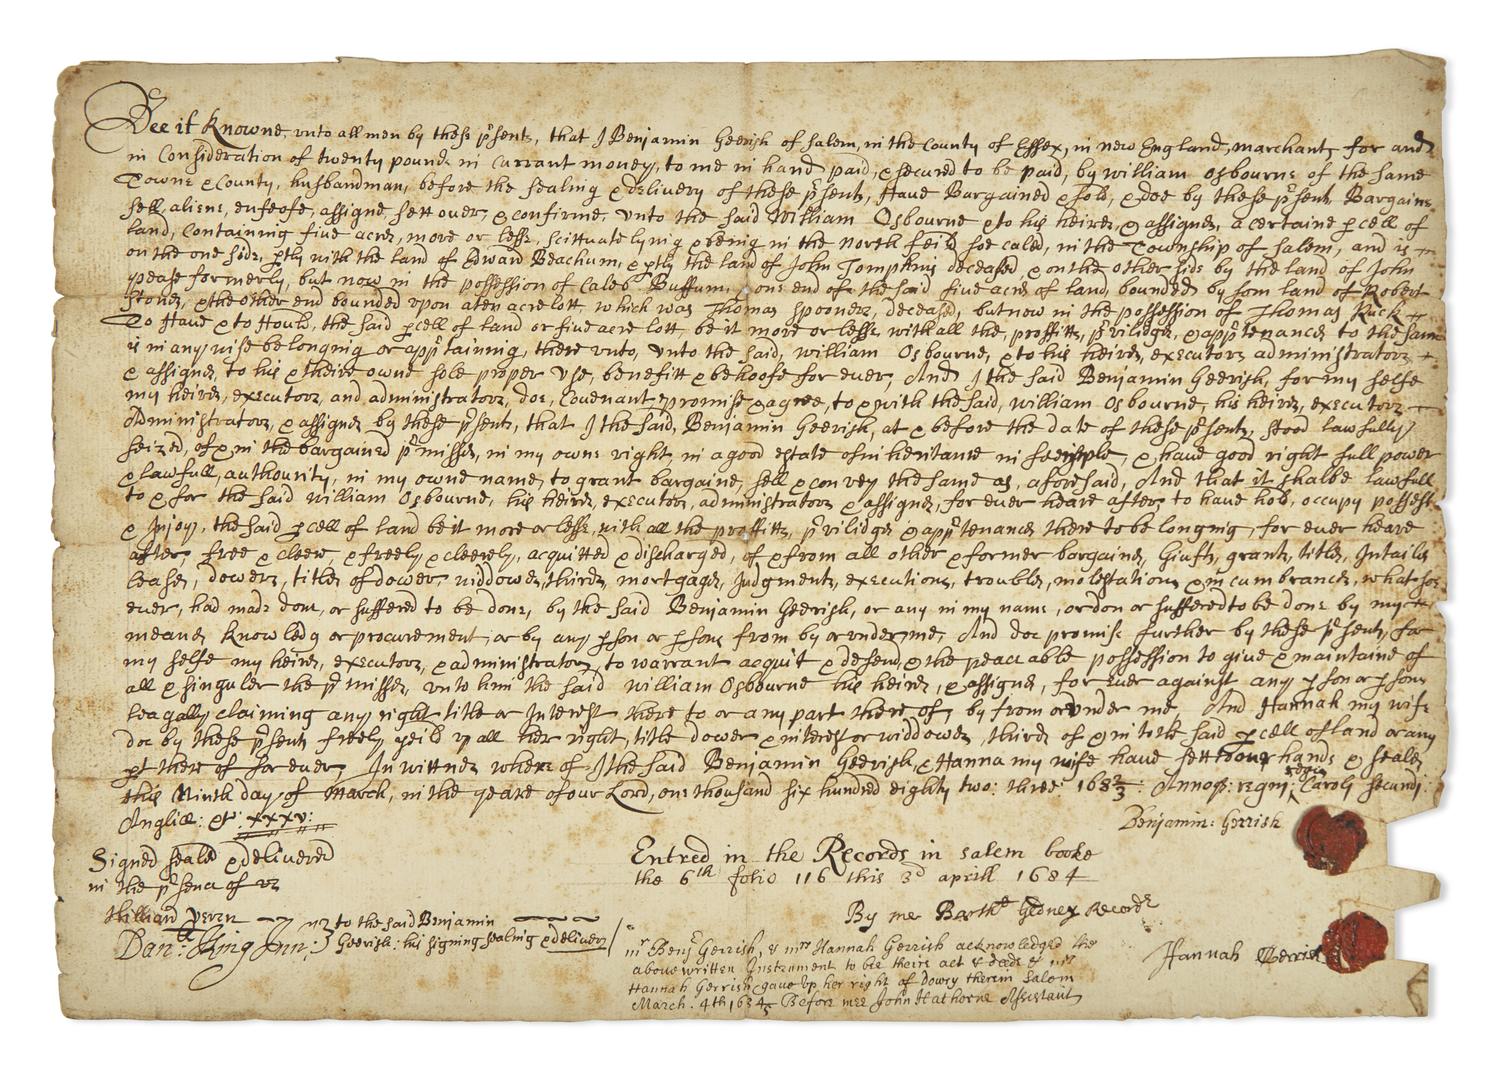 Bee it Knowne vnto all men by these p'sents, that I Benjamin Gerrish of Salem, in the County of Essex, in new England, marchant, for and
in Consideration of twenty pounds in Currant money, to me in hand paid, & secured to be paid, by william Osbourne of the same
Towne & County, husbandman, before the sealing & delivery of these p'sents, Have Bargained & sold, & doe by these p'sents Bargaine
sell, aliene, enfeofe, assigne, sett over, & confirme, vnto the said William Osbourne & to his heires, & assignes, a certaine p cell of
land, Containing five acres, more or lesse, scittuate lynig & being in the north feild soe caled, in the Township of Salem, and is
on the one side, ptly with the land of Edward Beachum, & ptly the land of John Tompkins deceased & on the other side by the land of John
pease formerly, but now in the possession of Caleb Buffum, one end of the said five acres of land, bounded by som land of Robert
Stones, & the other end bounded vpon a ten acre lott, which was Thomas Spooners, deceased, but now in the possession of Thomas Ruck
To Have & to Hould, the said p cell of land or five acre lott be it more or lesse, with all the, proffitts, p'viledges, & app'tenances to the same
is in any wise belonging or app'taining, there vnto, vnto the said, william Osbourne, & to his heires, executors administrators
& assignes, to his & theire owne sole proper vse, benefitt & behoofe for ever, And I the said Benjamin Gerrish, for my selfe
my heires, executors, and administrators, doe, Covenant, promise & agree, to & with the said, william Osbourne, his heires, executors
Administrators, & assignes by these p'sents, that I the said, Benjamin Gerrish, at & before the date of these p'sents, stood lawfully
seized, of & in the bargained p'misses, in my owne right, in a good estate of inheritance in fee simple, & have good right full power
& lawfull, authourity, in my owne name, to grant bargaine, sell & convey the same as, aforesaid, And that it shalbe lawfull
to & for the said william Osbourne, his heires, executors, administrators & assignes, for ever heare after, to have hold, occupy possess
& Injoy, the said p cell of land be it more or lesse, with all the proffitts, p'vilidges & app'tenances there to be longing, for ever heare
after, free & cleere & freely & cleerely, acquitted & discharged, of & from all other & former bargaines, Giufts, grants, titles, Intailes
leases, dowers, titles of dower, widdowes, thirds, mortgages, Judgments, executions, troubles, molestations & incumbrances, what soe
ever, had made done, or suffered to be done, by the said Benjamin Gerrish, or any in my name, or don or suffered to be done by my
meanes knowledg or procurement, or by any p son or p sons from by or vnder me, And doe promise further by these p'sents, for
my selfe my heires, executors, & administrators, to warrant acquit & defend, & the peaceable possession to give & maintaine of
all & singuler the p'misses, vnto him the said william Osbourne his heires, & assignes, for ever against any p son or p sons
leagally claiming any right title or Interest there to or any part there of, by from or vnder me, And Hannah my wife
doe by these p'sents freely yeild vp all her right, title dower & interest or widdowes, thirds of & in to the said p cell of land or any
pt there of for ever, In wittnes where of I the said Benjamin Gerrish, & Hanna my wife have sett our hands & seales
this Ninth day of March, in the yeare of our Lord, one thousand six hundred eighty two: three: 168 2/3: Annoq: regni regis Caroly secundi
Angliæ: &c: xxxv:
Benjamin: Gerrish
Signed sealed & delivered
in the p'senc of vs
Hilliard veren
Dan:ll King Jun:
to the said Benjamin
Gerrish: his signing sealing & delivery
Entred in the Records in Salem booke
the 6th folio 116 this 3d aprill 1684
By me Barth: Gedney Recordr
mr Benj Gerrish, & mrs Hannah Gerrish acknowledged the
above written Instrument to bee theire act & deede & mrs
Hannah Gerrish gave vp her right of dowry therein Salem
March. 4th 168 4/5 Before mee John Hathorne Assistant
Hannah Gerrish